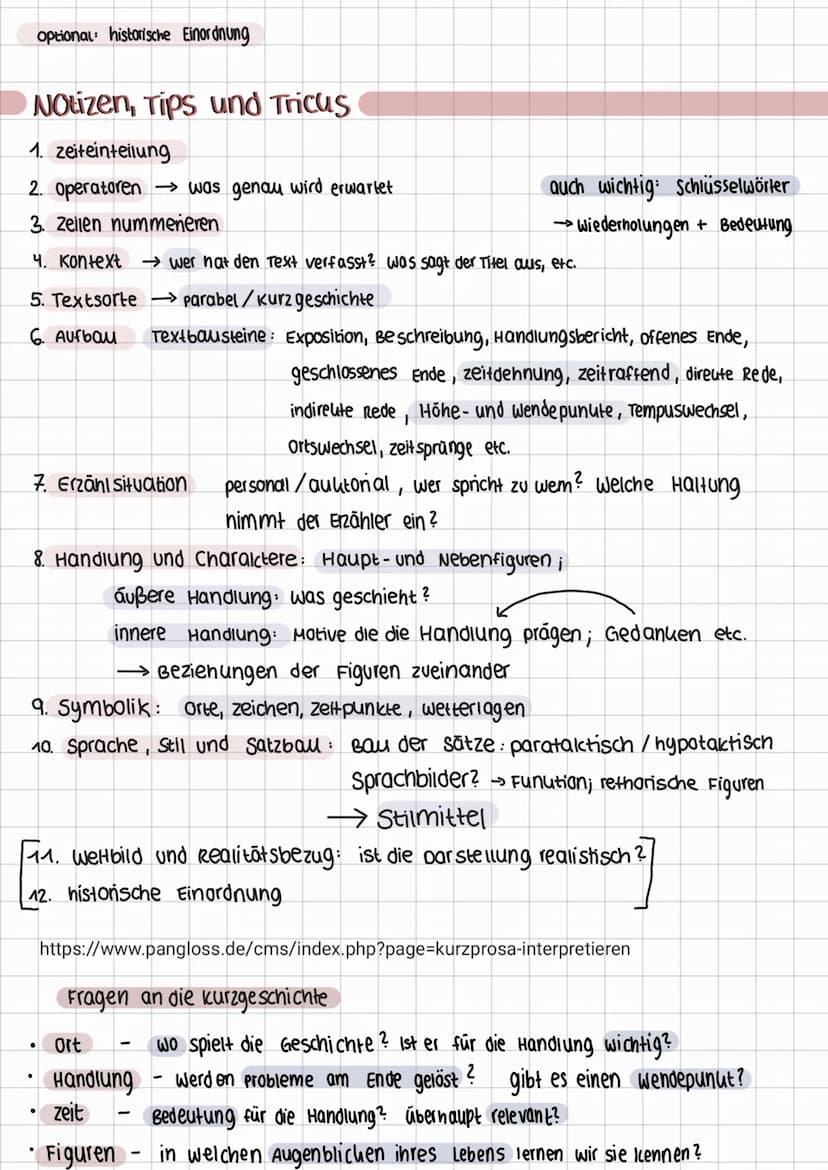 optional: historische Einordnung
Notizen, Tips und Tricks
1. Zeiteinteilung
2. Operatoren → was genau wird erwartet
auch wichtig: Schlüsselwörter
3. Zeilen nummerieren
→ Wiederholungen + Bedeutung
4. Kontext → wer hat den Text verfasst? was sagt der Titel aus, etc.
5. Textsorte → parabel / kurzgeschichte
6. Aufbau Textbausteine: Exposition, Beschreibung, Handlungsbericht, offenes Ende,
geschlossenes Ende, zeitdehnung, zeitraffend, direkte Rede,
indirekte Rede, Höhe- und Wendepunkte, Tempuswechsel,
Ortswechsel, zeitsprünge etc.
7. Erzählsituation personal / auktorial, wer spricht zu wem? Welche Haltung
nimmt der Erzähler ein?
8. Handlung und Charaktere: Haupt- und Nebenfiguren;
äußere Handlung: was geschieht?
innere Handlung: Motive die die Handlung prägen; Gedanken etc.
→ Beziehungen der Figuren zueinander
9. Symbolik: Orte, zeichen, zeitpunkte, wetterlagen
10. Sprache, Stil und Satzbau: Bau der Sätze: parataktisch / hypotaktisch
Sprachbilder? → Funktion; rethorische Figuren
→ Stilmittel
11. Weltbild und Realitätsbezug: ist die Darstellung realistisch?
12. historische Einordnung
https://www.pangloss.de/cms/index.php?page=kurzprosa-interpretieren
Fragen an die kurzgeschichte
• Ort - wo spielt die Geschichte? Ist er für die Handlung wichtig?
• Handlung - werden probleme am Ende gelöst? gibt es einen wendepunkt?
• zeit - Bedeutung für die Handlung? überhaupt relevant?
• Figuren - in welchen Augenblicken ihres Lebens lernen wir sie kennen?